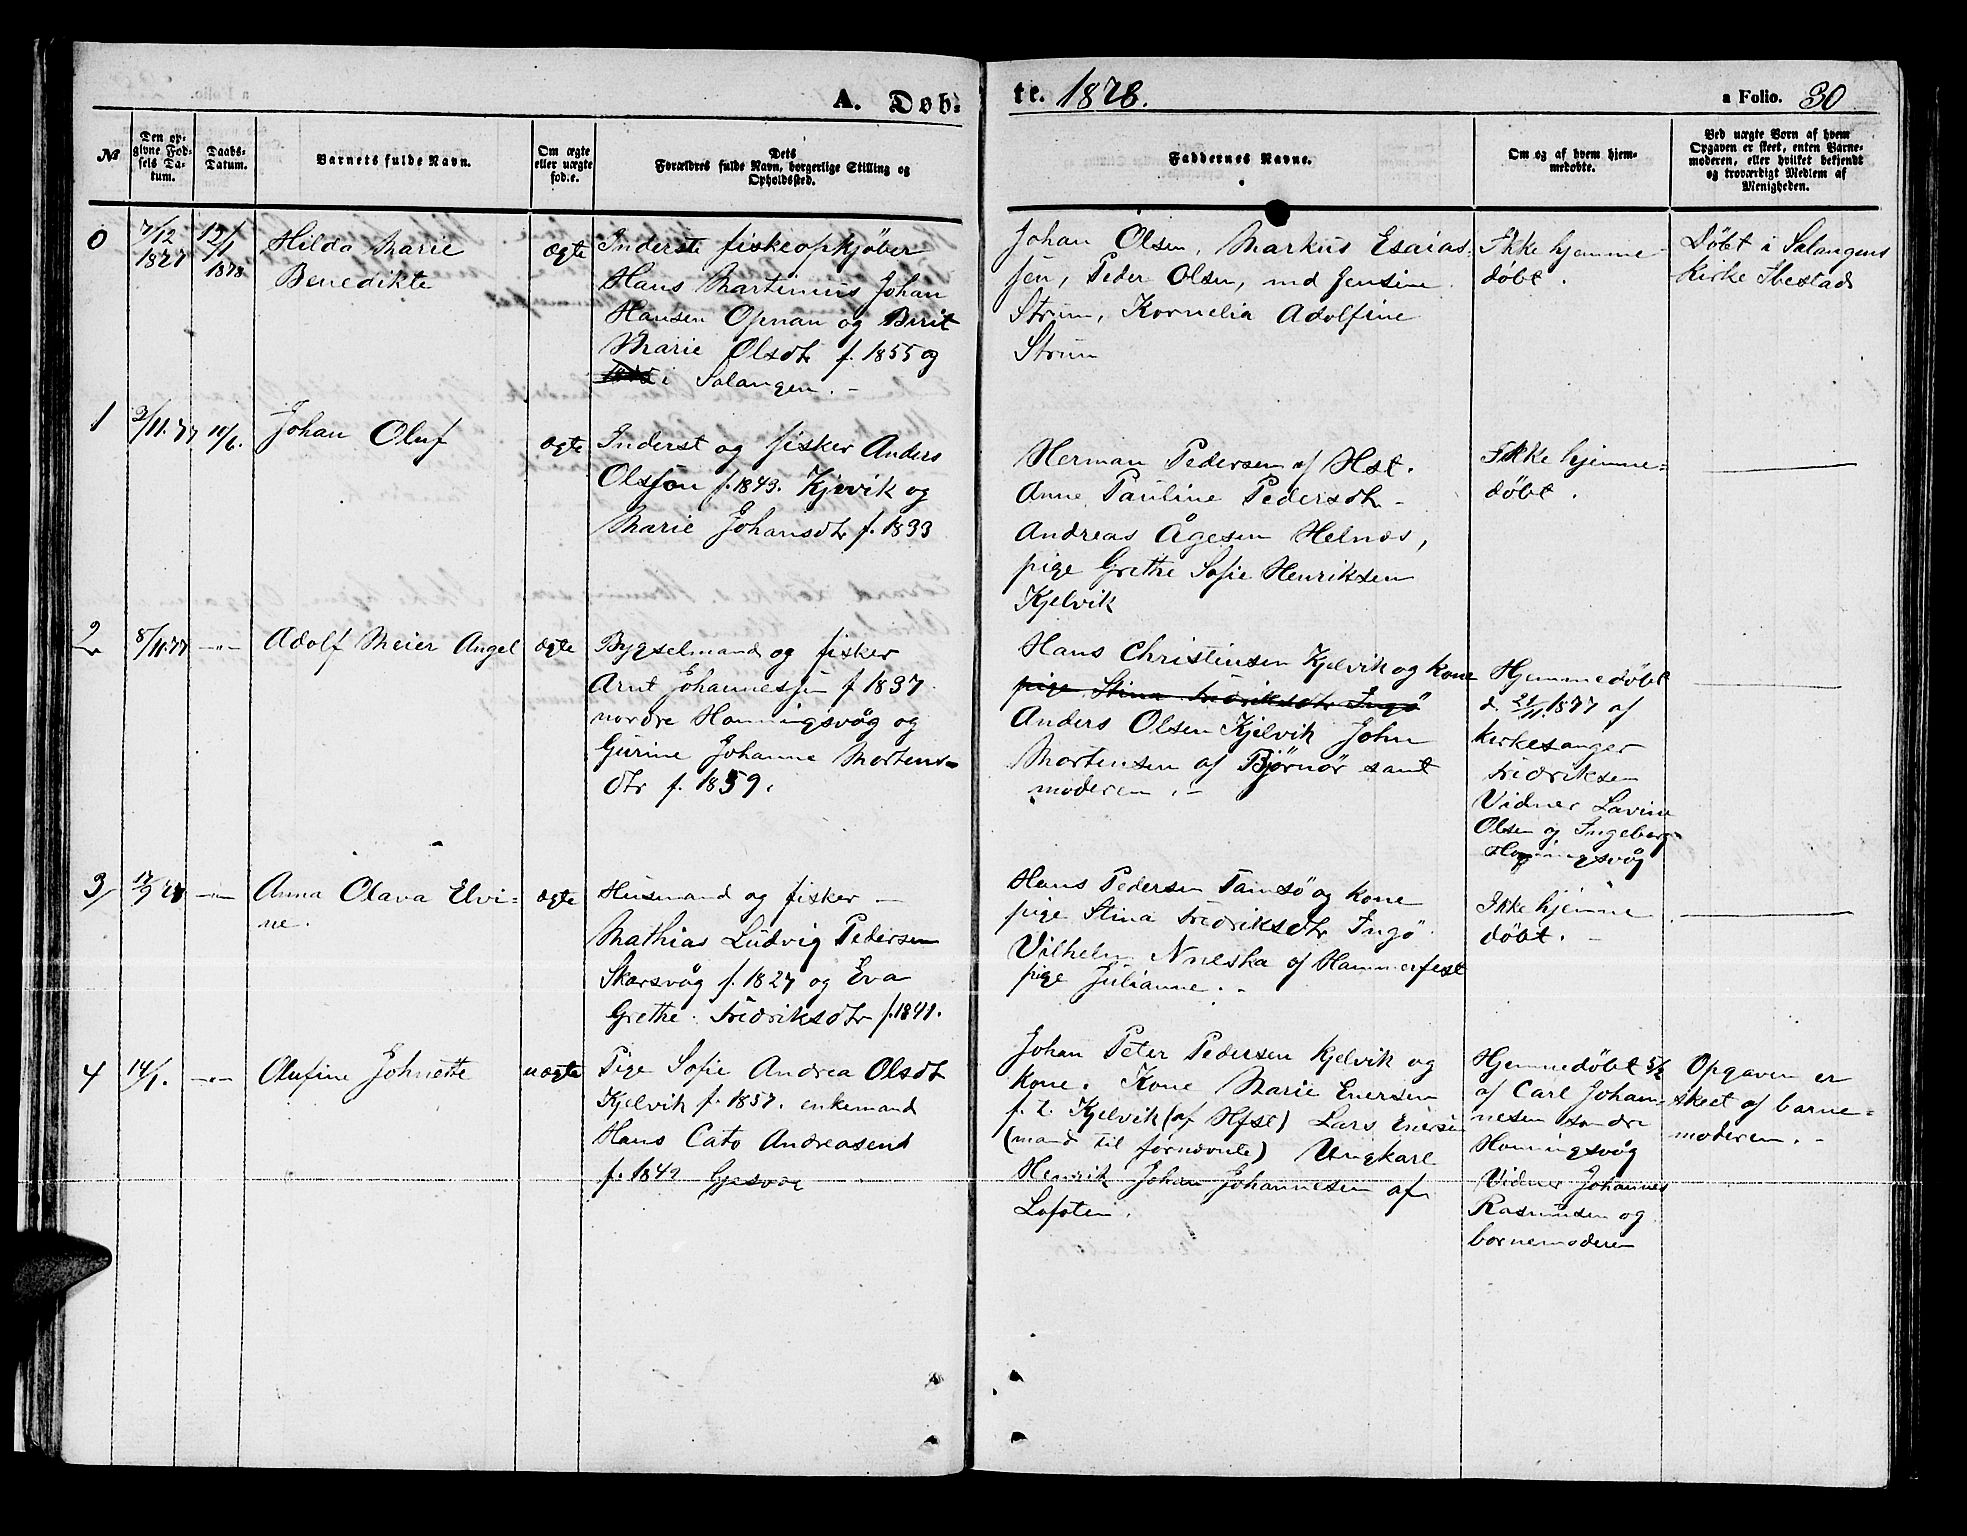 A. Døb-
te. 1878.
a Folio. 30
№
Den op-
givne Fød-
sels Da-
tum.
Daabs-
Datum.
Barnets fulde Navn.
Om ægte
eller uægte
fød.e.
Dets
Forældres fulde Navn, borgerlige Stilling og
Opholdssted.
Faddernes Navne.
Om og af hvem hjem-
medøbte.
Ved uægte Børn af hvem
Opgaven er skeet, enten Barne-
moderen, eller hvilket bekjendt
og troværdigt Medlem af
Menigheden.
0
7/12
1877
12/1
1878
Hilda Marie
Benedikte
ægte
Inderst fiskeopkjøber
Hans Martinius Johan
Hansen Opnan og Berit
Marie Olsdtr f. 1855 og
i Salangen. -
Johan Olsen, Markus Esaias-
sen, Peder Olsen, md Jensine
Strøm, Kornelia Adolfine
Strøm
Ikke hjemme
døbt.
Døbt i Salangens
Kirke Ibestad
1
2/11.77
11/6.
Johan Oluf
ægte
Inderst og fisker Anders
Olssøn f. 1843. Kjelvik og
Marie Johansdtr f. 1833
Herman Pedersen af Hst.
Anne Pauline Pedersdtr -
Andreas Ågesen Helnes,
pige Grethe Sofie Henriksen
Kjelvik
Ikke hjemme-
døbt.
2
8/11.77
-"-
Adolf Meier Angel
ægte
Bygselmand og fisker
Arnt Johannessen f 1837.
nordre Honningsvåg og
Gurine Johanne Mortens-
dtr f. 1859.
Hans Christensen Kjelvik og kone
pige Stina Fredriksdtr Ingø
Anders Olsen Kjelvik John
Mortensen af Bjørnør samt
moderen. -
Hjemmedøbt
d. 21/11.1877 af
kirkesanger
Fredriksen
Vidner Lavine
Olsen og Ingeborg
Honningsvåg
3
-"-
Anna Olava Elvi-
ne.
ægte
Husmand og fisker -
Mathias Ludvig Pedersen
Skarsvåg f. 1827 og Eva
Grethe Fredriksdtr f. 1841.
Hans Pedersen Tamsø og kone
pige Stina Fredriksdtr Ingø
Vilhelm af Hammerfest
pige Julianne. -
Ikke hjemme
døbt. -
4
14/1.
-"-
Olufine Johnette
uægte
Pige Sofie Andrea Olsdtr
Kjelvik f. 1857. enkemand
Hans Cato Andreasen
f. 1842 Gjesvær
Johan Peter Pedersen Kjelvik og
kone. Kone Marie Enersen
f. t. Kjelvik (af Hfst) Lars Enersen
(mand til førnævnte) Ungkarl
Henrik Johan Johannesen af
Lofoten.
Hjemmedøbt 5/2
af Carl Johan-
nesen søndre
Honningsvåg
Vidner Johannes
Rasmusen og
barnemoderen
Opgaven er
skeet af barne-
moderen. -